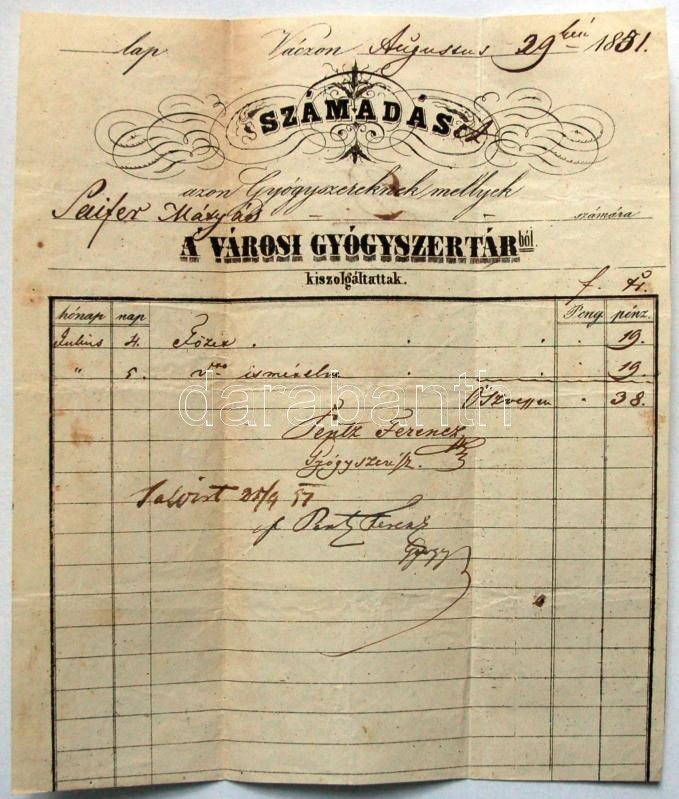 lap Váczon Augustus 29 kén 1851.
SZÁMADÁS
azon Gyógyszereknek mellyek
Saifer Mátyás számára
A VÁROSI GYÓGYSZERTÁRból.
kiszolgáltattak.
f. xr.
hónap nap Peng. pénz.
Julius 4. Főzet . . . . 19.
" 5. ismételve . . . 19.
Öszvessen . 38.
darabanth
Pentz Ferencz
Gyógyszerész.
Saldirt 25/9 51
Pentz Ferenz
Gyógy